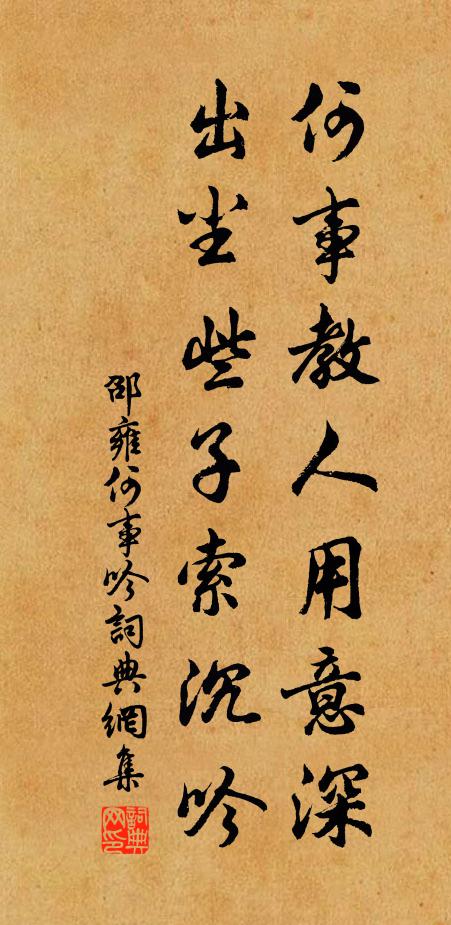 何事教人用意深
出尘些子索沉吟
邵雍何事吟詞典網集
詞典網印